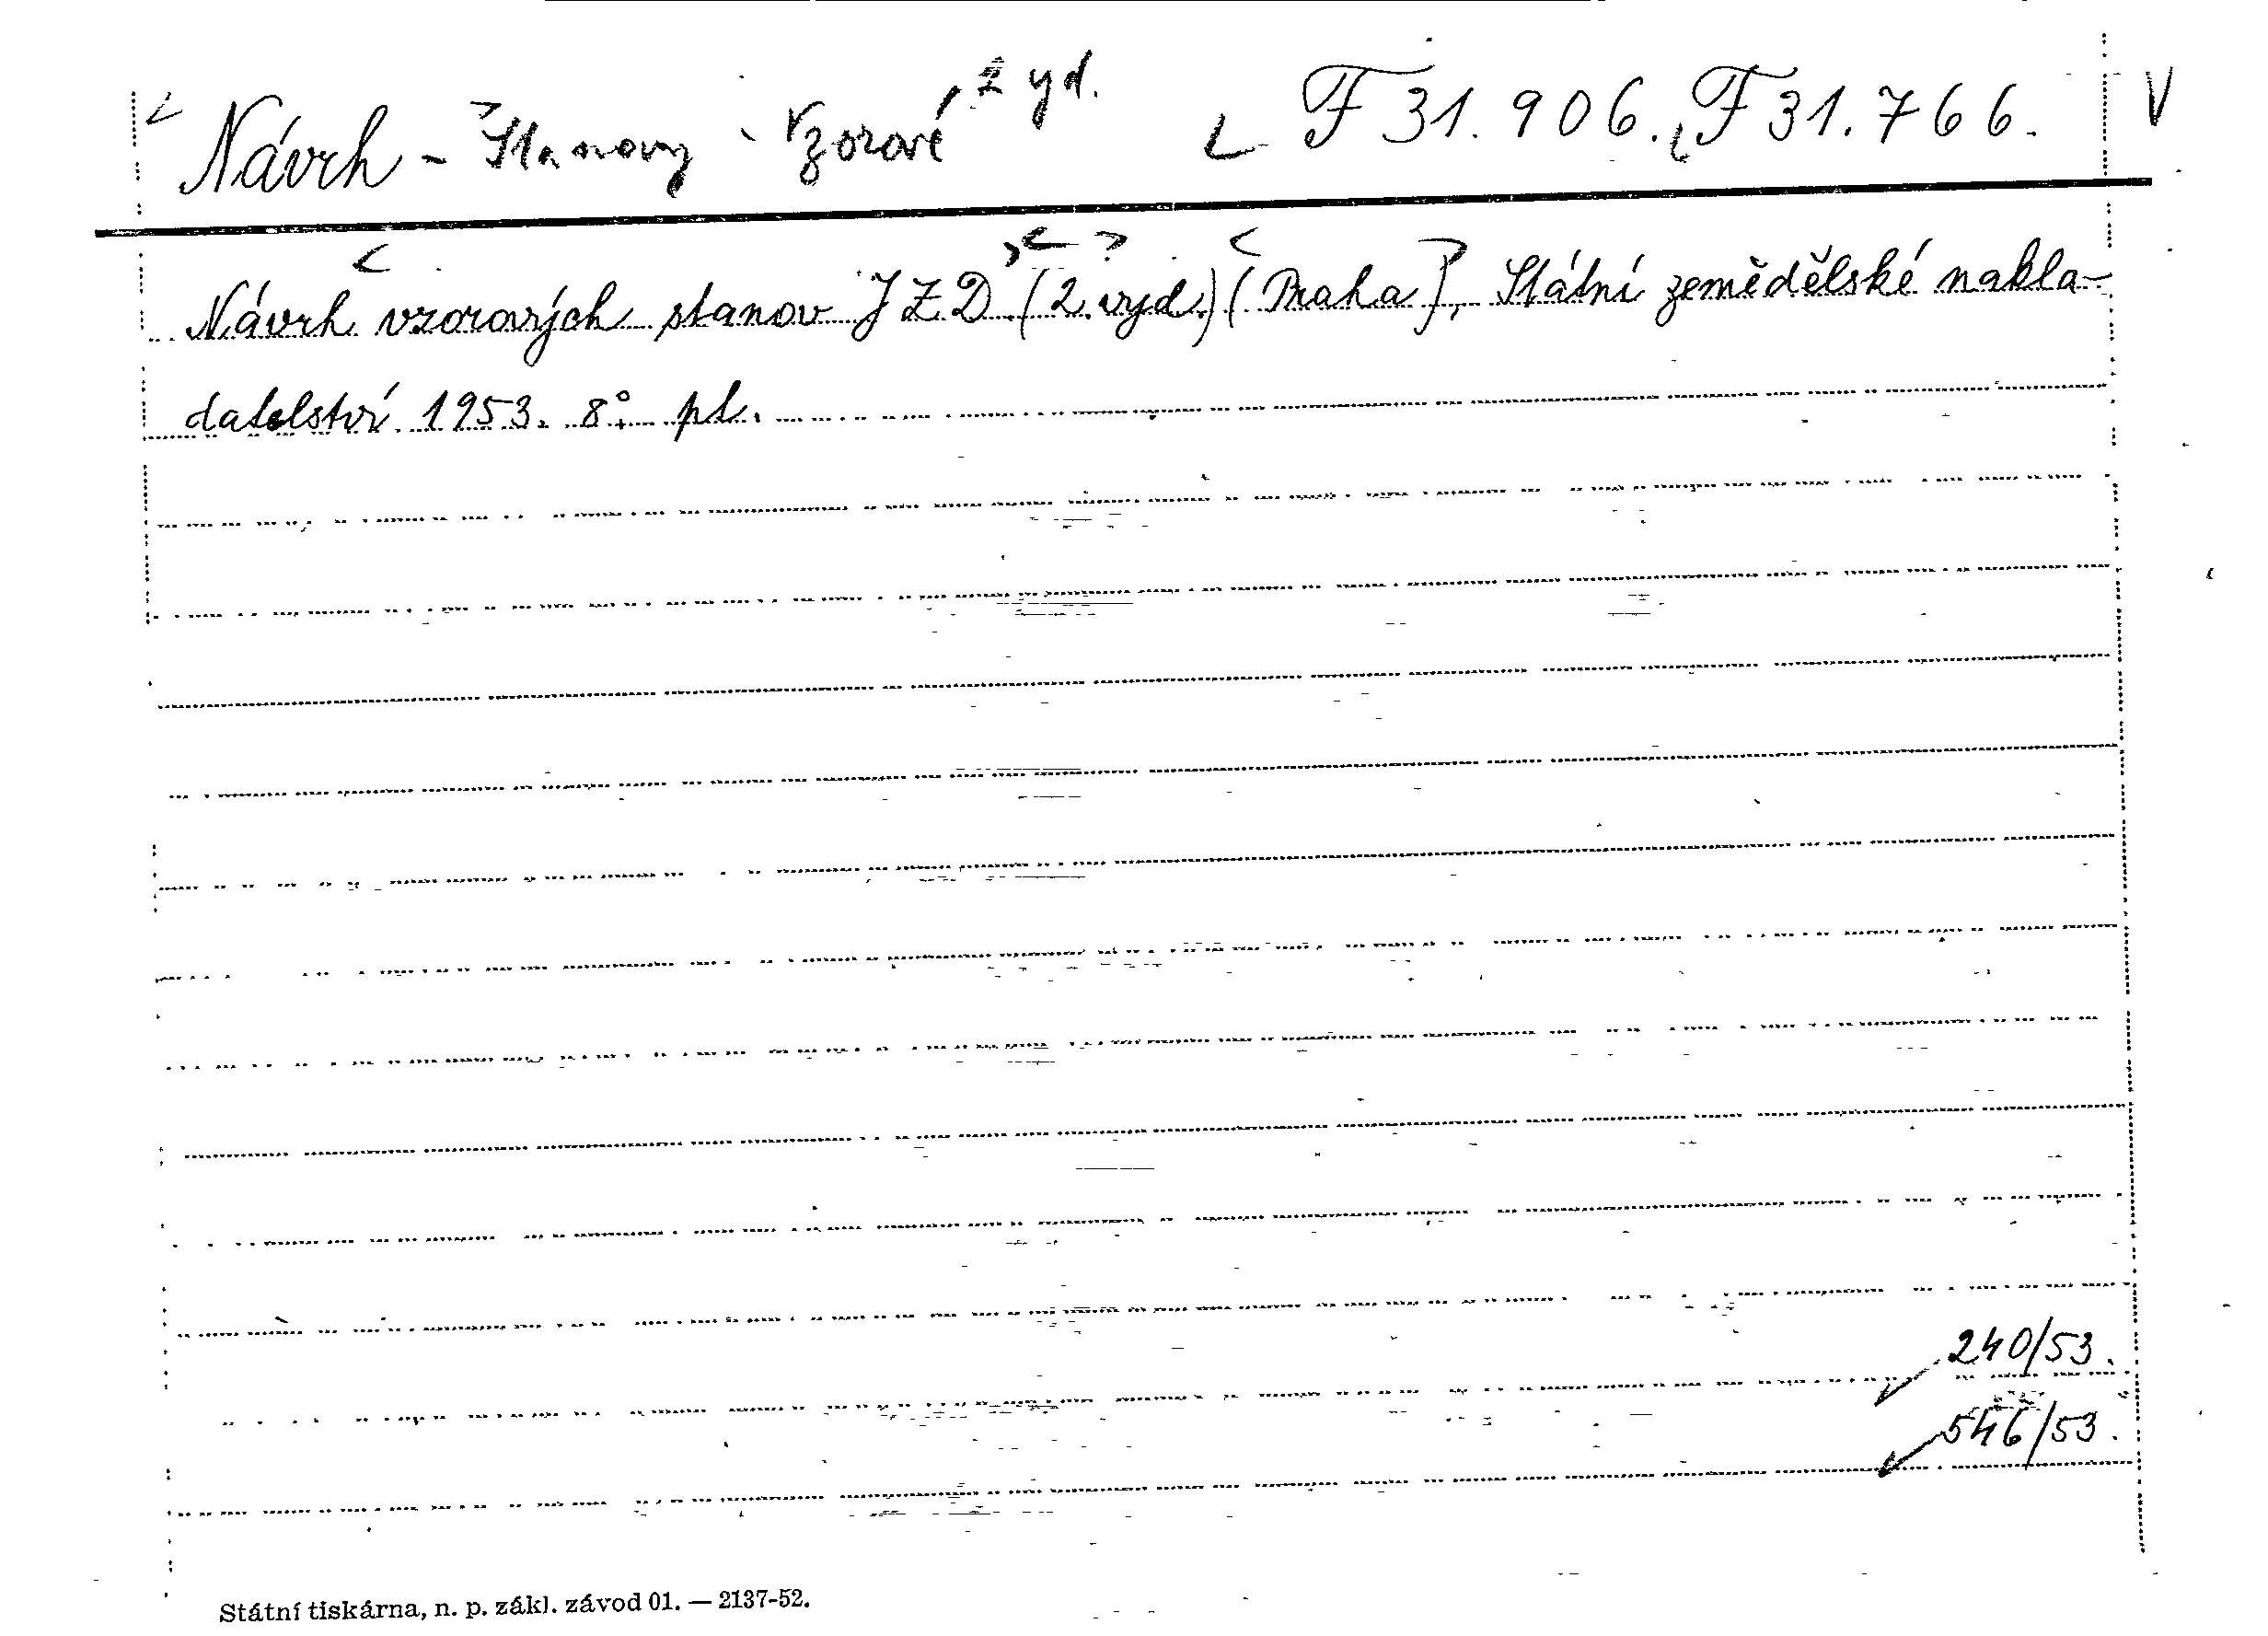 Návrh - Stanovy - Vzorové, 2 yd. F 31.906., F 31.766. V
Návrh vzorových stanov JZD. (2. vyd.) (Praha), Státní zemědělské nakla-
datelství 1953. 8°. pl.
240/53.
546/53.
Státní tiskárna, n. p. zákl. závod 01. — 2137-52.